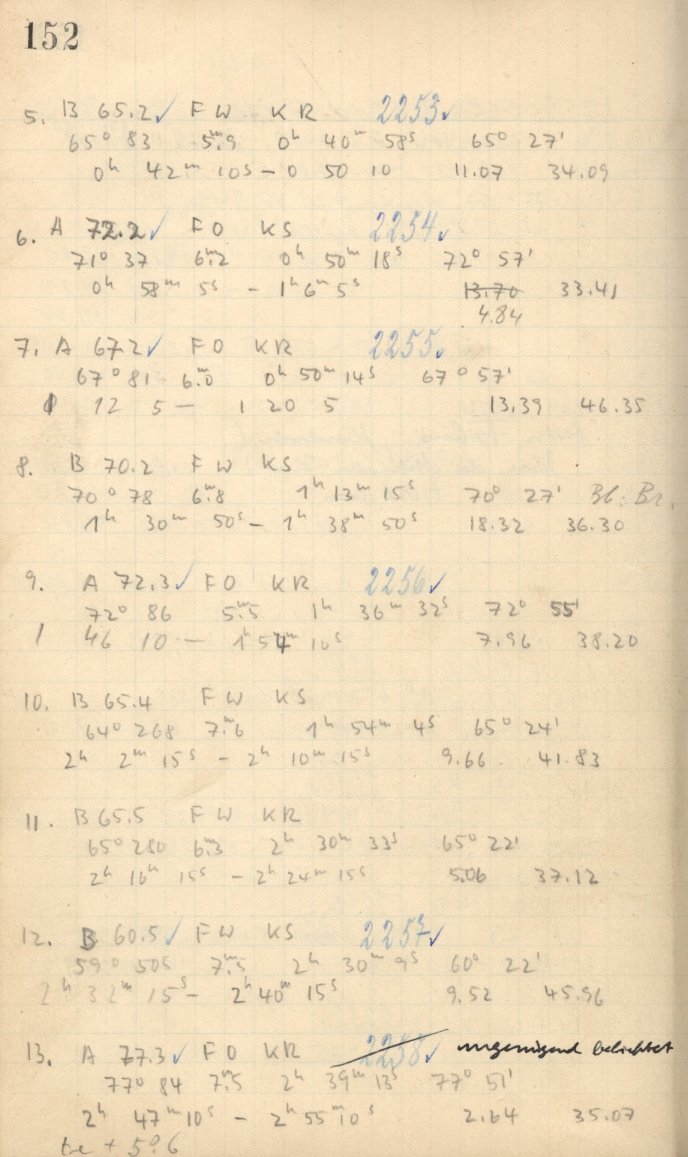 152
5. B 65.2 ✓ F W K R 2253 ✓
65° 83 5.ᵐ9 0ʰ 40ᵐ 58ˢ 65° 27'
0ʰ 42ᵐ 10s – 0 50 10 11.07 34.09
6. A 72.2 ✓ F O K S 2254 ✓
71° 37 6.ᵐ2 0ʰ 50ᵐ 18ˢ 72° 57'
0ʰ 58ᵐ 5ˢ – 1ʰ 6ᵐ 5ˢ 13.70 33.41
4.84
7. A 67.2 ✓ F O K R 2255 ✓
67° 81 6.ᵐ0 0ʰ 50ᵐ 14ˢ 67° 57'
1 12 5 – 1 20 5 13.39 46.35
8. B 70.2 F W K S
70° 78 6.ᵐ8 1ʰ 13ᵐ 15ˢ 70° 27' Bl. Br.
1ʰ 30ᵐ 50ˢ – 1ʰ 38ᵐ 50ˢ 18.32 36.30
9. A 72.3 ✓ F O K R 2256 ✓
72° 86 5.ᵐ5 1ʰ 36ᵐ 32ˢ 72° 55'
1 46 10 – 1ʰ 54ᵐ 10ˢ 7.96 38.20
10. B 65.4 F W K S
64° 268 7.ᵐ6 1ʰ 54ᵐ 4ˢ 65° 24'
2ʰ 2ᵐ 15ˢ – 2ʰ 10ᵐ 15ˢ 9.66 41.83
11. B 65.5 F W K R
65° 280 6.ᵐ3 2ʰ 30ᵐ 33ˢ 65° 22'
2ʰ 16ʰ 15ˢ – 2ʰ 24ᵐ 15ˢ 5.06 37.12
12. B 60.5 ✓ F W K S 2257 ✓
59° 505 7.ᵐ5 2ʰ 30ᵐ 9ˢ 60° 22'
2ʰ 32ᵐ 15ˢ – 2ʰ 40ᵐ 15ˢ 9.52 45.96
13. A 77.3 ✓ F O K R 2258 ✓ ungenügend belichtet
77° 84 7.ᵐ5 2ʰ 39ᵐ 13ˢ 77° 51'
2ʰ 47ᵐ 10ˢ – 2ʰ 55ᵐ 10ˢ 2.64 35.07
+ 5°.6